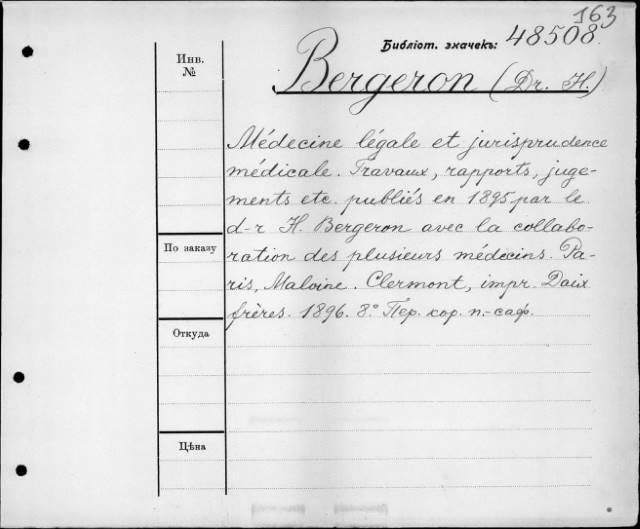 163
Библіот. значекъ: 48508.
Инв.
№
Bergeron (Dr. H.)
Médecine légale et jurisprudence
médicale. Travaux, rapports, juge-
ments etc. publiés en 1895 par le
d-r H. Bergeron avec la collabo-
ration des plusieurs médecins. Pa-
ris, Maloine. Clermont, impr. Daix
frères. 1896. 8.° Пер. кор. п.-саф.
По заказу
Откуда
Цѣна